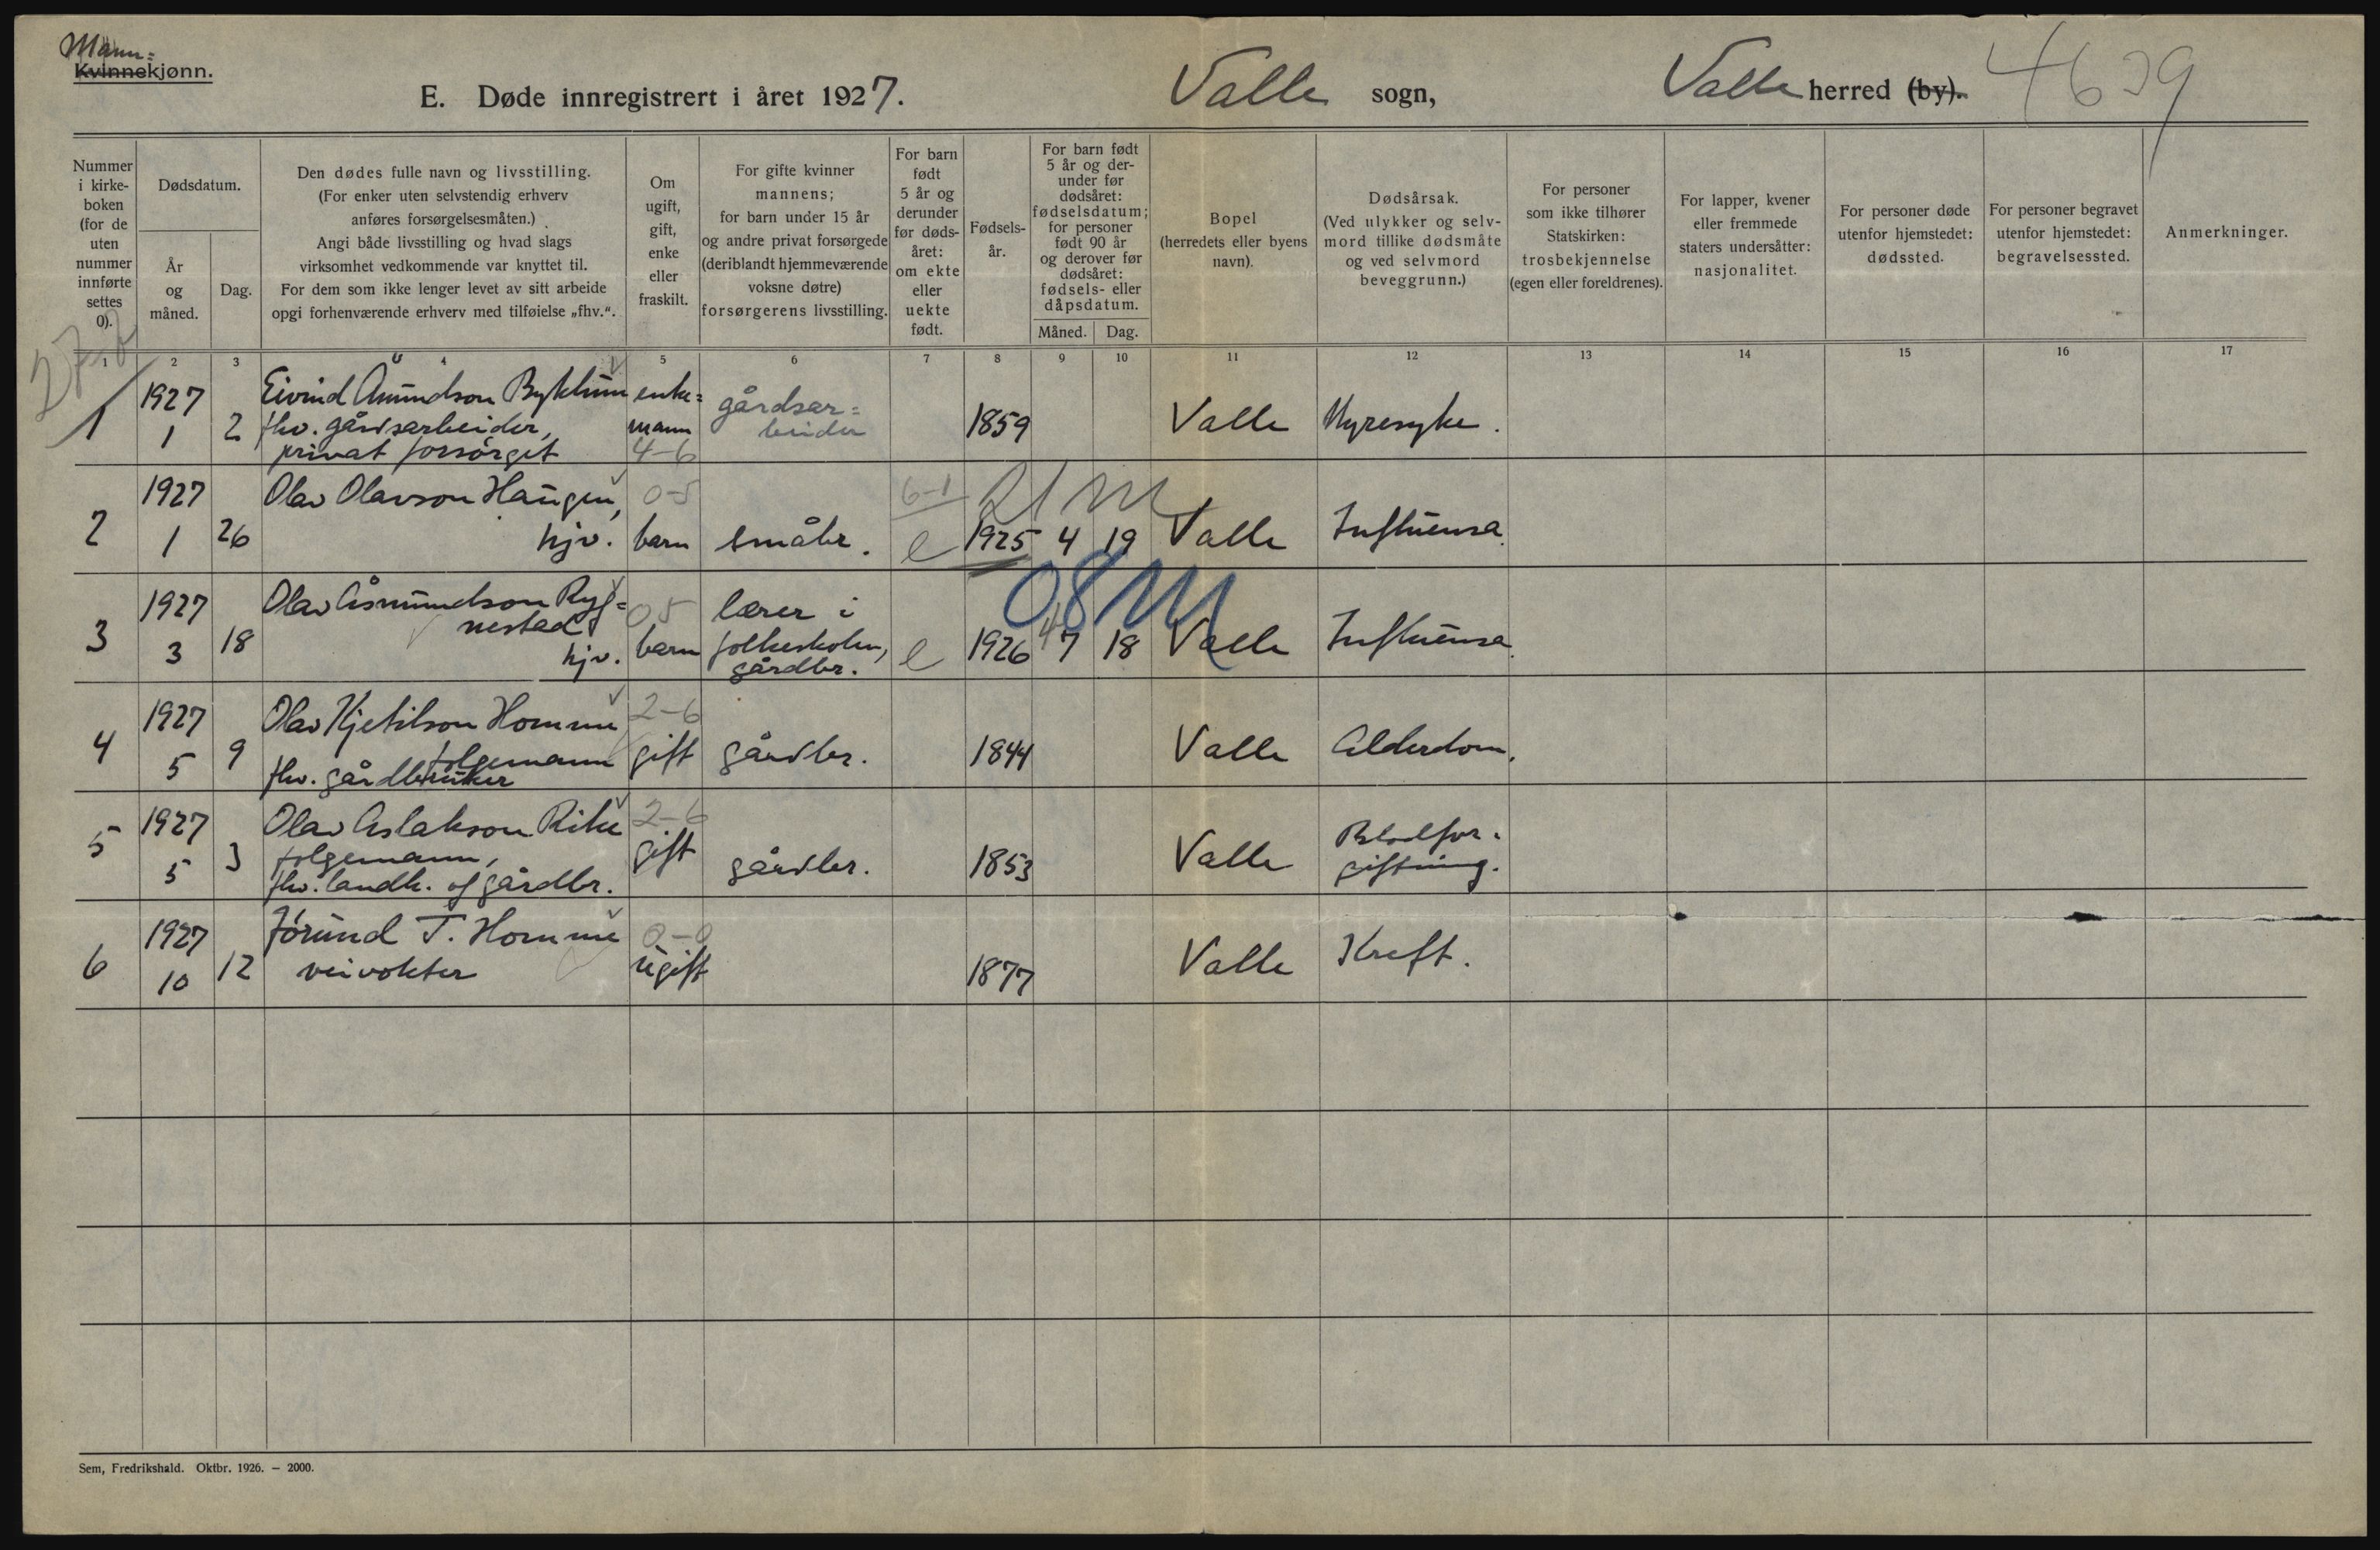 Mann=
Kvinnekjønn.
E. Døde innregistrert i året 1927.
Valle sogn,
Valle herred (by).
4639
Nummer i kirke-boken (for de uten nummer innførte settes 0).
Dødsdatum.
År og måned.
Dag.
Den dødes fulle navn og livsstilling.
(For enker uten selvstendig erhverv
anføres forsørgelsesmåten.)
Angi både livsstilling og hvad slags
virksomhet vedkommende var knyttet til.
For dem som ikke lenger levet av sitt arbeide
opgi forhenværende erhverv med tilføielse „fhv.“.
Om ugift, gift, enke eller fraskilt.
For gifte kvinner
mannens;
for barn under 15 år
og andre privat forsørgede
(deriblandt hjemmeværende
voksne døtre)
forsørgerens livsstilling.
For barn født 5 år og derunder før døds-året: om ekte eller uekte født.
Fødsels-år.
For barn født 5 år og der-under før dødsåret: fødselsdatum; for personer født 90 år og derover før dødsåret: fødsels- eller dåpsdatum.
Måned. Dag.
Bopel
(herredets eller byens
navn).
Dødsårsak.
(Ved ulykker og selv-
mord tillike dødsmåte
og ved selvmord
beveggrunn.)
For personer
som ikke tilhører
Statskirken:
trosbekjennelse
(egen eller foreldrenes).
For lapper, kvener
eller fremmede
staters undersåtter:
nasjonalitet.
For personer døde
utenfor hjemstedet:
dødssted.
For personer begravet
utenfor hjemstedet:
begravelsessted.
Anmerkninger.
1 2 3 4 5 6 7 8 9 10 11 12 13 14 15 16 17
1 1927 1 2 Eivind Åmundson Byklum enke=
fhv. gårdsarbeider, mann gårdsar=beider 1859 Valle Nyresyke.
privat forsørget 4-6
2 1927 1 26 Olav Olavson Haugen, 0-5 6-1 21 M
hjv. barn småbr. e 1925 4 19 Valle Influensa.
3 1927 3 18 Olav Åsmundson Ryg= 05 lærer i 08 M
nestad
hjv. barn folkeskolen, gårdbr. e 1926 7 18 Valle Influensa.
4 1927 5 9 Olav Kjetilson Homme 2-6
folgemann gift gårdbr. 1844 Valle Alderdom.
fhv. gårdbruker
5 1927 5 3 Olav Aslakson Rike 2-6
folgemann, gift gårdbr. 1853 Valle Blodfor-
fhv. landh. og gårdbr. giftning.
6 1927 10 12 Jórund T. Homme 0-0
veivokter ugift 1877 Valle Kreft.
Sem, Fredrikshald. Oktbr. 1926. – 2000.